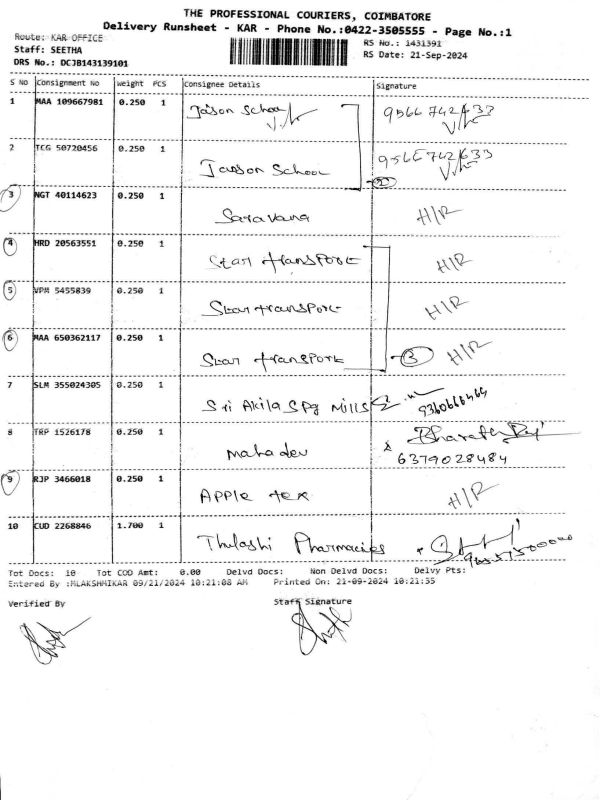 THE PROFESSIONAL COURIERS, COIMBATORE
Delivery Runsheet - KAR - Phone No.:0422-3505555 - Page No.:1
Route: KAR OFFICE
RS No.: i431391
Staff: SEETHA
RS Date: 21-Sep-2024
DRS No.: DCJB143139101
S No Consignment No Weight PCS Consignee Details Signature
1 MAA 109667981 0.250 1 Jason School
2 TCG 50720456 0.250 1 Jason School 2
3 NGT 40114623 0.250 1 Saravana H/R
4 HRD 20563551 0.250 1 Star transport H/R
5 VPM 5455839 0.250 1 Star transport H/R
6 MAA 650362117 0.250 1 Star transport 3 H/R
7 SLM 355024305 0.250 1 Sri Akila SPg Mills
8 TRP 1526178 0.250 1 Mahadev 6379028484
9 RJP 3466018 0.250 1 APPle tex H/R
10 CUD 2268846 1.700 1 Thulashi Pharmacies
Tot Docs: 10 Tot COD Amt: 0.00 Delvd Docs: Non Delvd Docs: Delvy Pts:
Entered By :MLAKSHMIKAR 09/21/2024 10:21:08 AM Printed On: 21-09-2024 10:21:35
Verified By Staff Signature